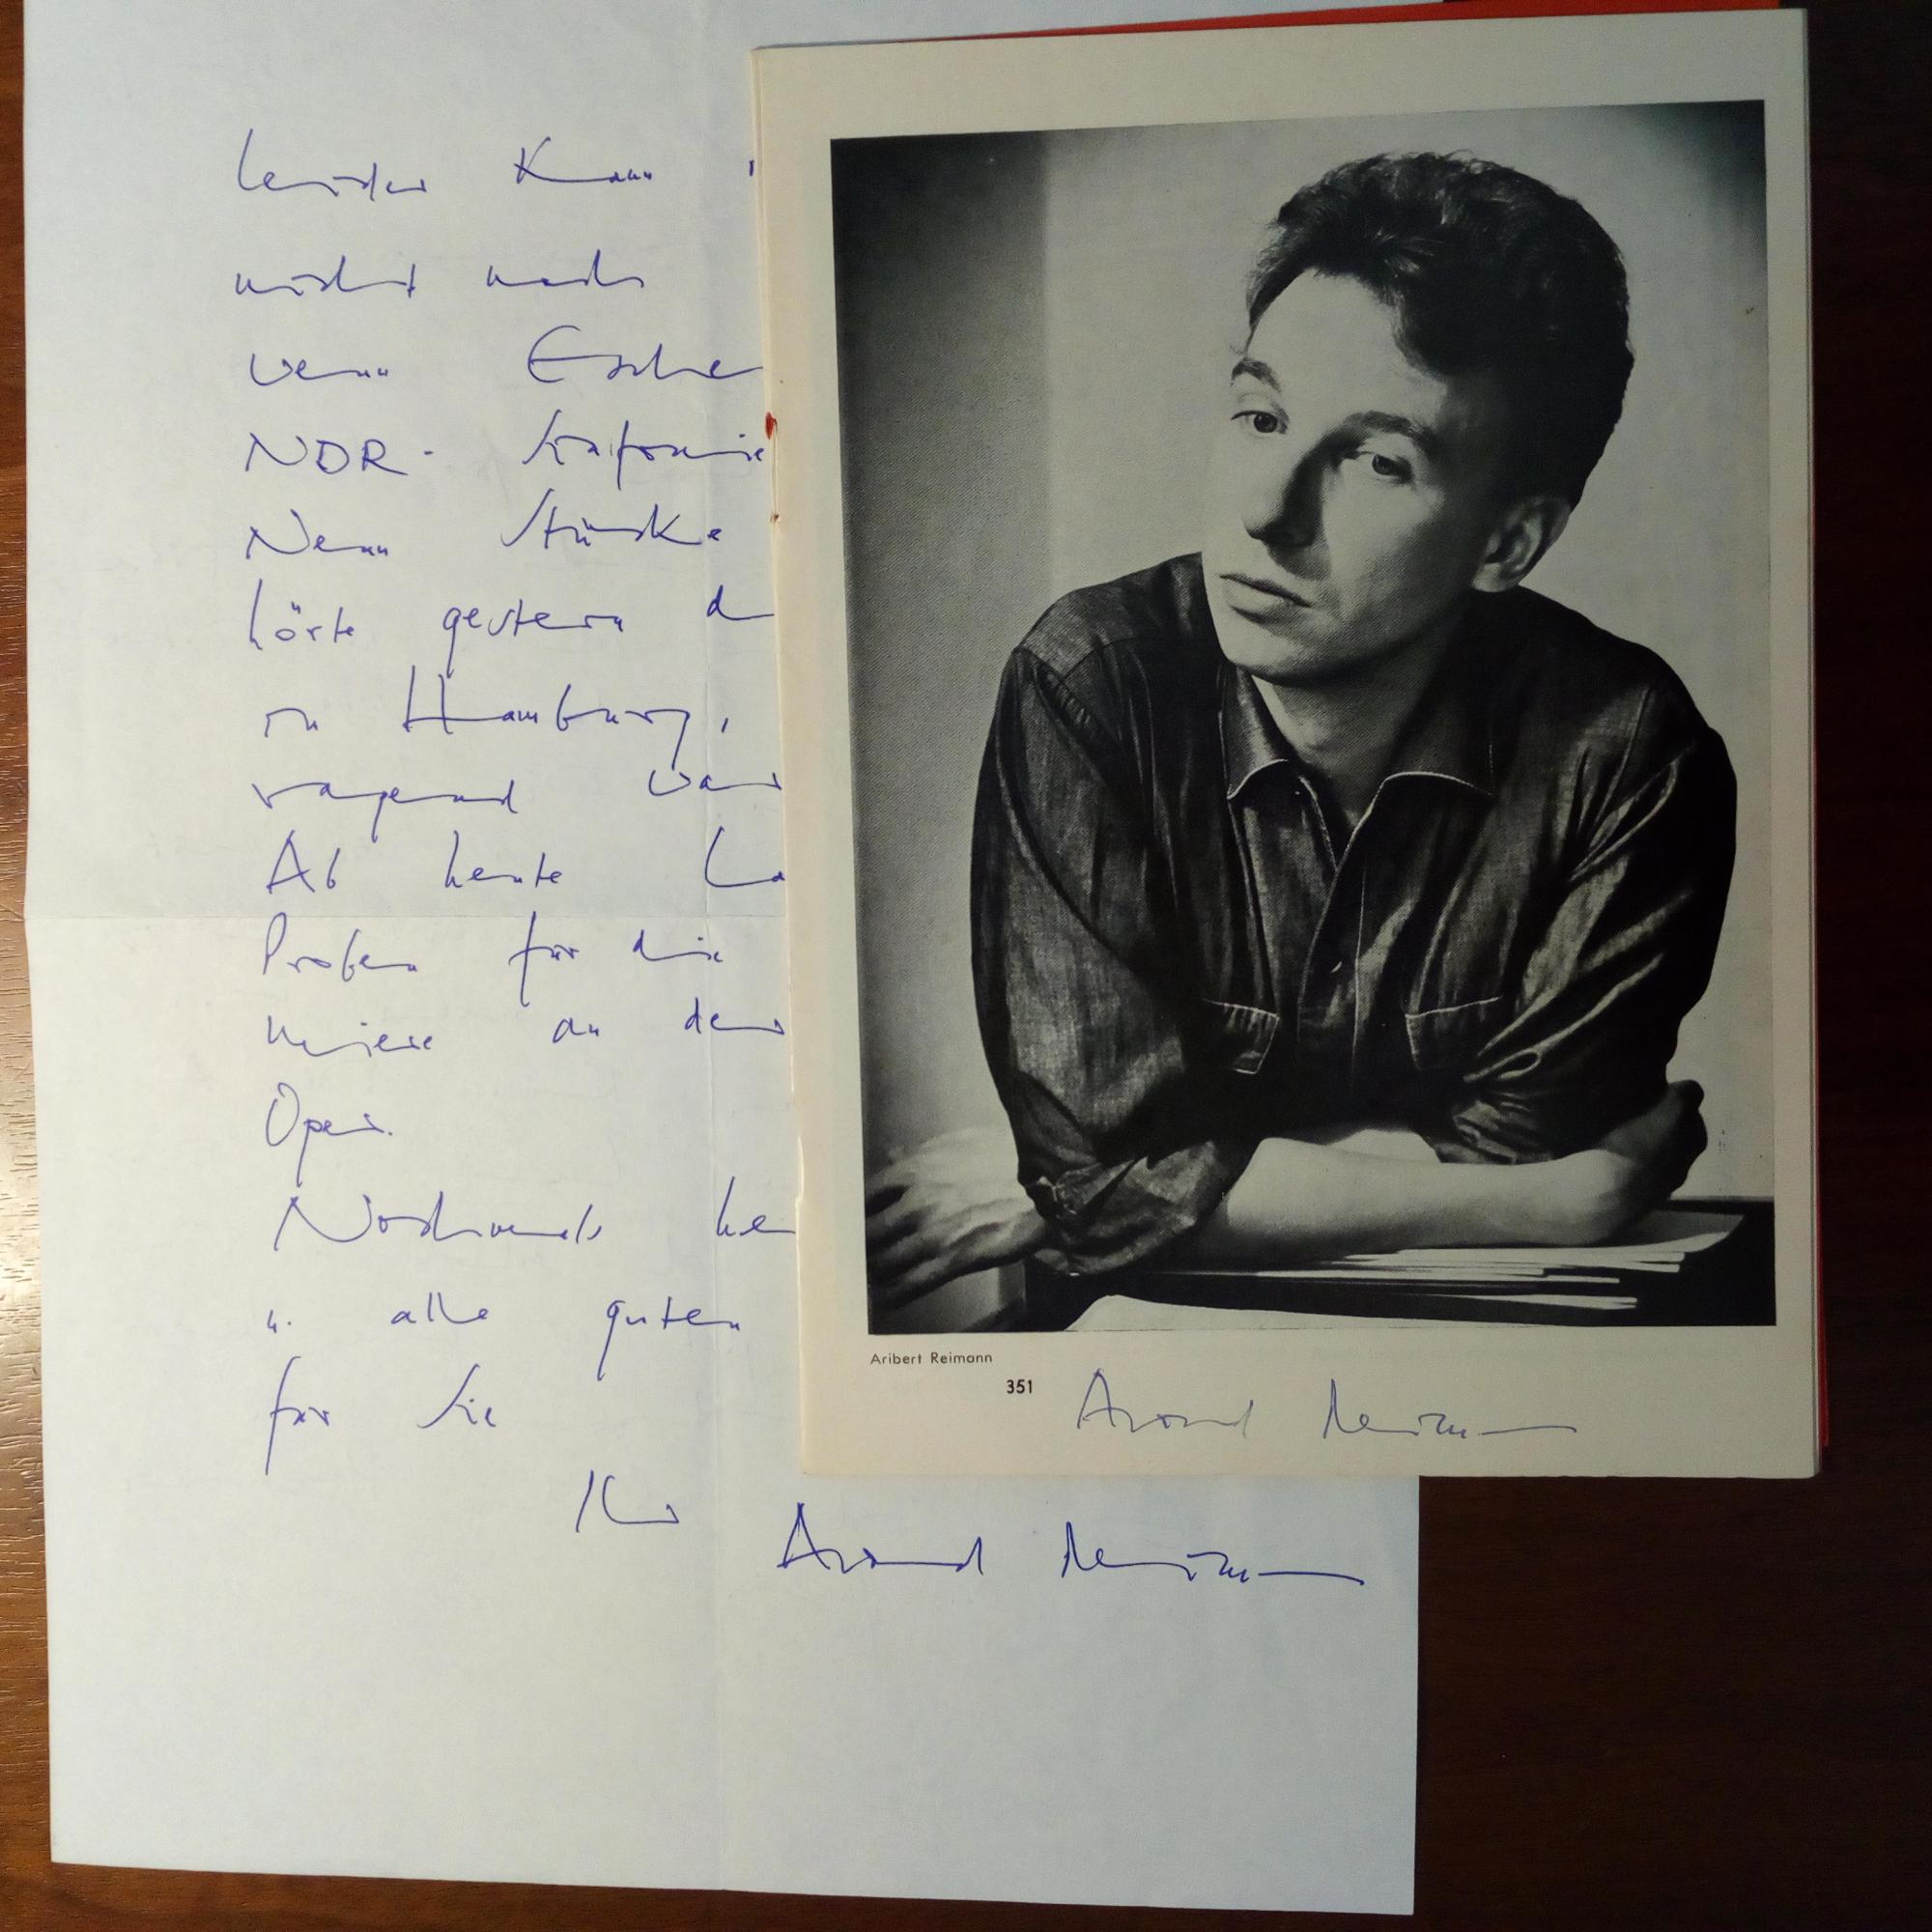 leider kann
nicht nach
wenn Esche
NDR- Sinfonie
Neun Stücke
hörte gestern d
in Hamburg,
ragend war
Ab heute ha
Proben für die
miere an der
Oper.
Nochmals he
u. alle guten
für Sie
Ihr
Aribert Reimann
Aribert Reimann
351
Aribert Reimann